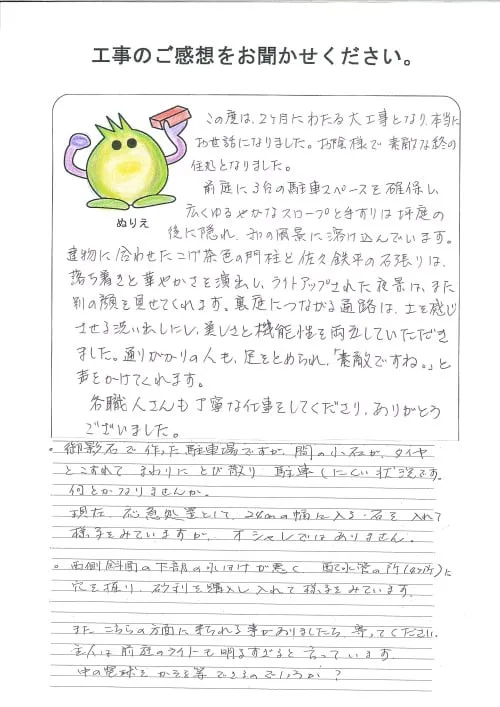 工事のご感想をお聞かせください。
ぬりえ
この度は、2ヶ月にわたる大工事となり、本当に
お世話になりました。お陰様で素敵な終の
住処となりました。
前庭に3台の駐車スペースを確保し
広くゆるやかなスロープと手すりは坪庭の
後に隠れ、和の風景に溶け込んでいます。
建物に合わせたこげ茶色の門柱と佐久鉄平の石張りは、
落ち着きと華やかさを演出し、ライトアップされた夜景は、また
別の顔を見せてくれます。裏庭につながる通路は、土を感じ
させる洗い出しにし、美しさと機能性を両立していただき
ました。通りがかりの人も、足をとめられ、「素敵ですね。」と
声をかけてくれます。
各職人さんも丁寧な仕事をしてくださり、ありがとう
ございました。
。御影石で作った駐車場ですが、間の小石が、タイヤ
とこすれて まわりにとび散り 駐車しにくい状況です。
何とかなりませんか。
現在、応急処置として、24cmの幅に入る石を入れて
様子をみていますが、オシャレではありません。
。西側斜面の下部の水はけが悪く 配水管の所(4ヶ所)に
穴を掘り、砂利を購入し入れて様子をみています。
また こちらの方面に来られる事がありましたら、寄ってください。
主人は前庭のライトも明るすぎると言っています。
中の電球をかえる等できるのでしょうか?